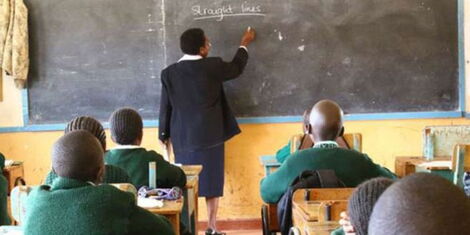 Straight lines